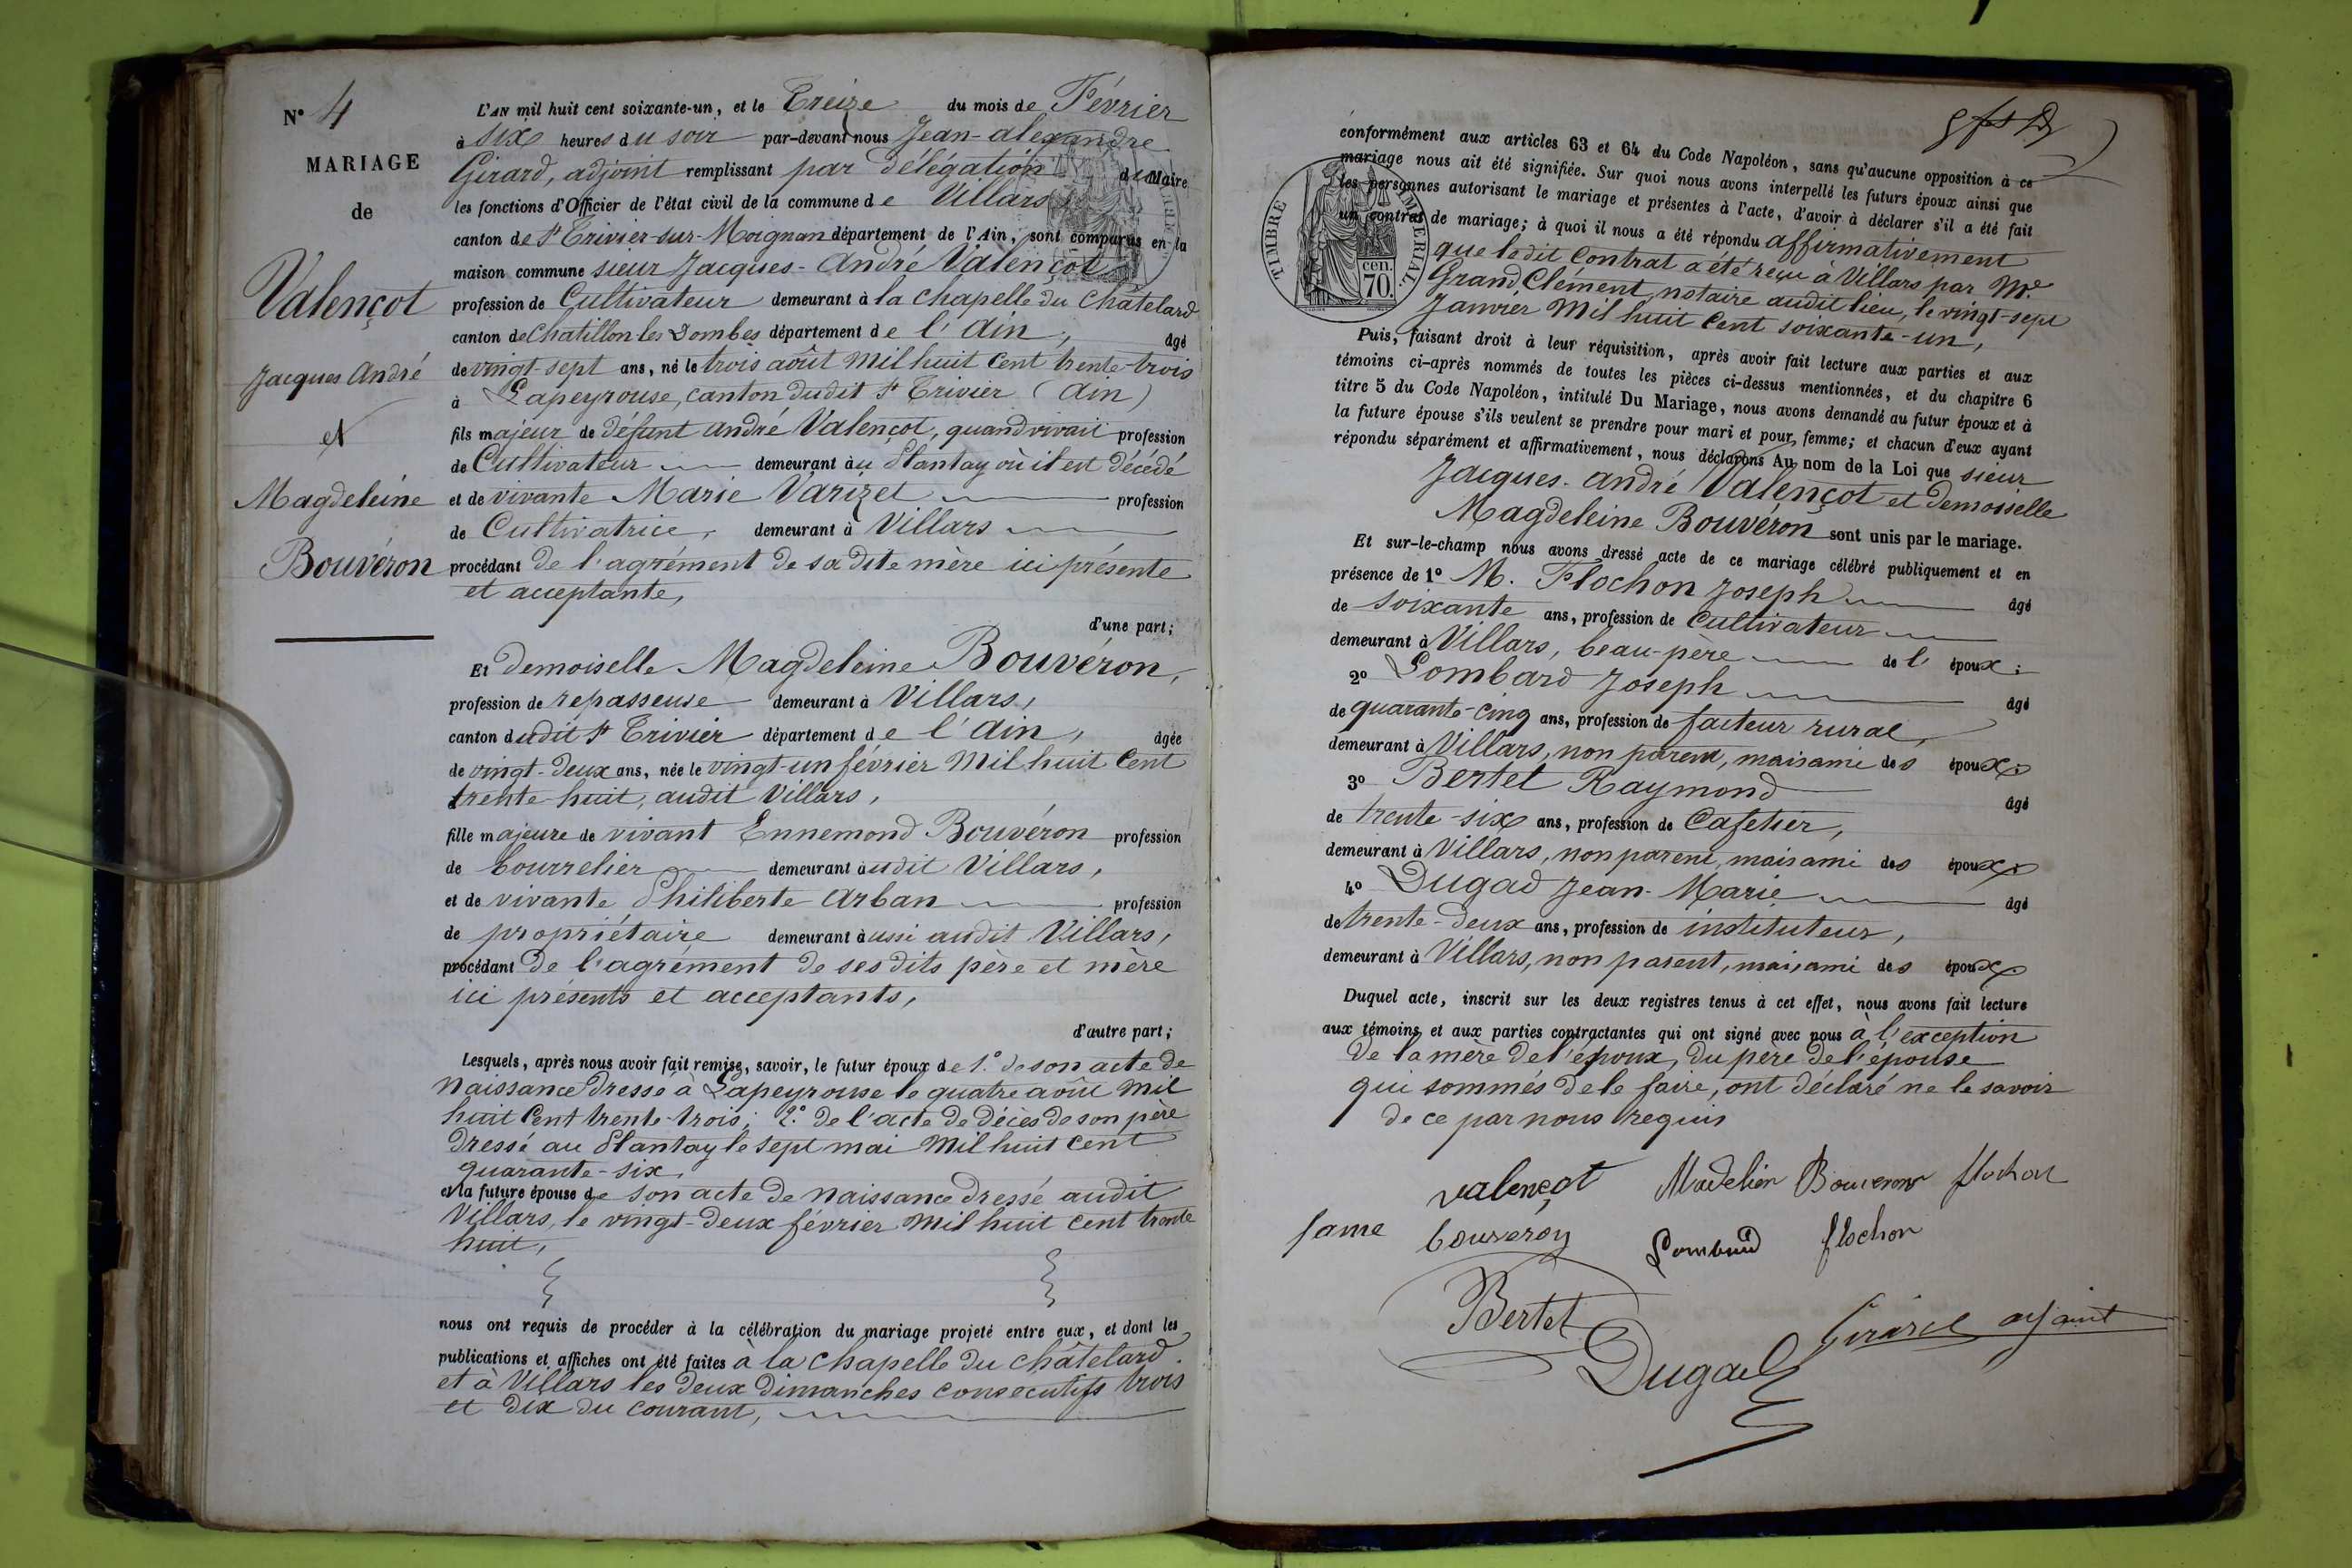 N° 4
MARIAGE
de
Valençot
Jacques André
et
Magdeleine
Bouvéron
L'AN mil huit cent soixante-un, et le Treize du mois de Février
à six heures du soir par-devant nous Jean-alexandre
Girard, adjoint remplissant par délégation du Maire
les fonctions d'Officier de l'état civil de la commune de Villars
canton de St Trivier-sur-Moignan département de l'Ain, sont comparus en la
maison commune sieur Jacques-André Valençot
profession de Cultivateur demeurant à la chapelle du Châtelard
canton de Chatillon les Dombes département de l'Ain, âgé
de vingt-sept ans, né le trois août mil huit cent trente-trois
à Lapeyrouse, canton dudit St Trivier (Ain)
fils majeur de défunt André Valençot, quand vivait profession
de Cultivateur demeurant au Plantay où il est décédé
et de vivante Marie Varizet profession
de Cultivatrice, demeurant à Villars
procédant de l'agrément de sa dite mère ici présente
et acceptante,
d'une part;
Et demoiselle Magdeleine Bouvéron,
profession de repasseuse demeurant à Villars,
canton dudit St Trivier département de l'Ain, âgée
de vingt-deux ans, née le vingt-un février mil huit cent
trente huit, audit Villars,
fille majeure de vivant Ennemond Bouvéron profession
de bourrelier demeurant audit Villars,
et de vivante Philiberte Arban profession
de propriétaire demeurant aussi audit Villars,
procédant de l'agrément de ses dits père et mère
ici présents et acceptants,
d'autre part;
Lesquels, après nous avoir fait remise, savoir, le futur époux de 1.° de son acte de
naissance dressé à Lapeyrouse le quatre août mil
huit cent trente-trois; 2.° de l'acte de décès de son père
dressé au Plantay le sept mai mil huit cent
quarante-six,
et la future épouse de son acte de naissance dressé audit
Villars, le vingt-deux février mil huit cent trente
huit,
nous ont requis de procéder à la célébration du mariage projeté entre eux, et dont les
publications et affiches ont été faites à la chapelle du châtelard
et à Villars les deux dimanches consecutifs trois
et dix du courant,
conformément aux articles 63 et 64 du Code Napoléon, sans qu'aucune opposition à ce
mariage nous ait été signifiée. Sur quoi nous avons interpellé les futurs époux ainsi que
les personnes autorisant le mariage et présentes à l'acte, d'avoir à déclarer s'il a été fait
un contrat de mariage; à quoi il nous a été répondu affirmativement
que ledit contrat a été reçu à Villars par Me
Grand Clément notaire audit lieu, le vingt-sept
Janvier mil huit cent soixante-un,
TIMBRE IMPERIAL.
cen.
70.
Puis, faisant droit à leur réquisition, après avoir fait lecture aux parties et aux
témoins ci-après nommés de toutes les pièces ci-dessus mentionnées, et du chapitre 6
titre 5 du Code Napoléon, intitulé Du Mariage, nous avons demandé au futur époux et à
la future épouse s'ils veulent se prendre pour mari et pour femme; et chacun d'eux ayant
répondu séparément et affirmativement, nous déclarons Au nom de la Loi que sieur
Jacques-André Valençot et demoiselle
Magdeleine Bouvéron sont unis par le mariage.
Et sur-le-champ nous avons dressé acte de ce mariage célébré publiquement et en
présence de 1° M. Flochon Joseph âgé
de soixante ans, profession de Cultivateur
demeurant à Villars, beau-père de l'époux;
2° Lombard Joseph âgé
de quarante-cinq ans, profession de facteur rural,
demeurant à Villars, non parent, mais ami des époux;
3° Bertet Raymond âgé
de trente-six ans, profession de Cafetier,
demeurant à Villars, non parent, mais ami des époux;
4° Dugad Jean-Marie âgé
de trente-deux ans, profession de instituteur,
demeurant à Villars, non parent, mais ami des époux.
Duquel acte, inscrit sur les deux registres tenus à cet effet, nous avons fait lecture
aux témoins et aux parties contractantes qui ont signé avec nous à l'exception
de la mère de l'époux, du père de l'épouse
qui sommés de le faire, ont déclaré ne le savoir
de ce par nous requis
valençot Madelien Bouveron flochon
fame bouveron Lombard flochon
Bertet
Dugad
Girard adjoint